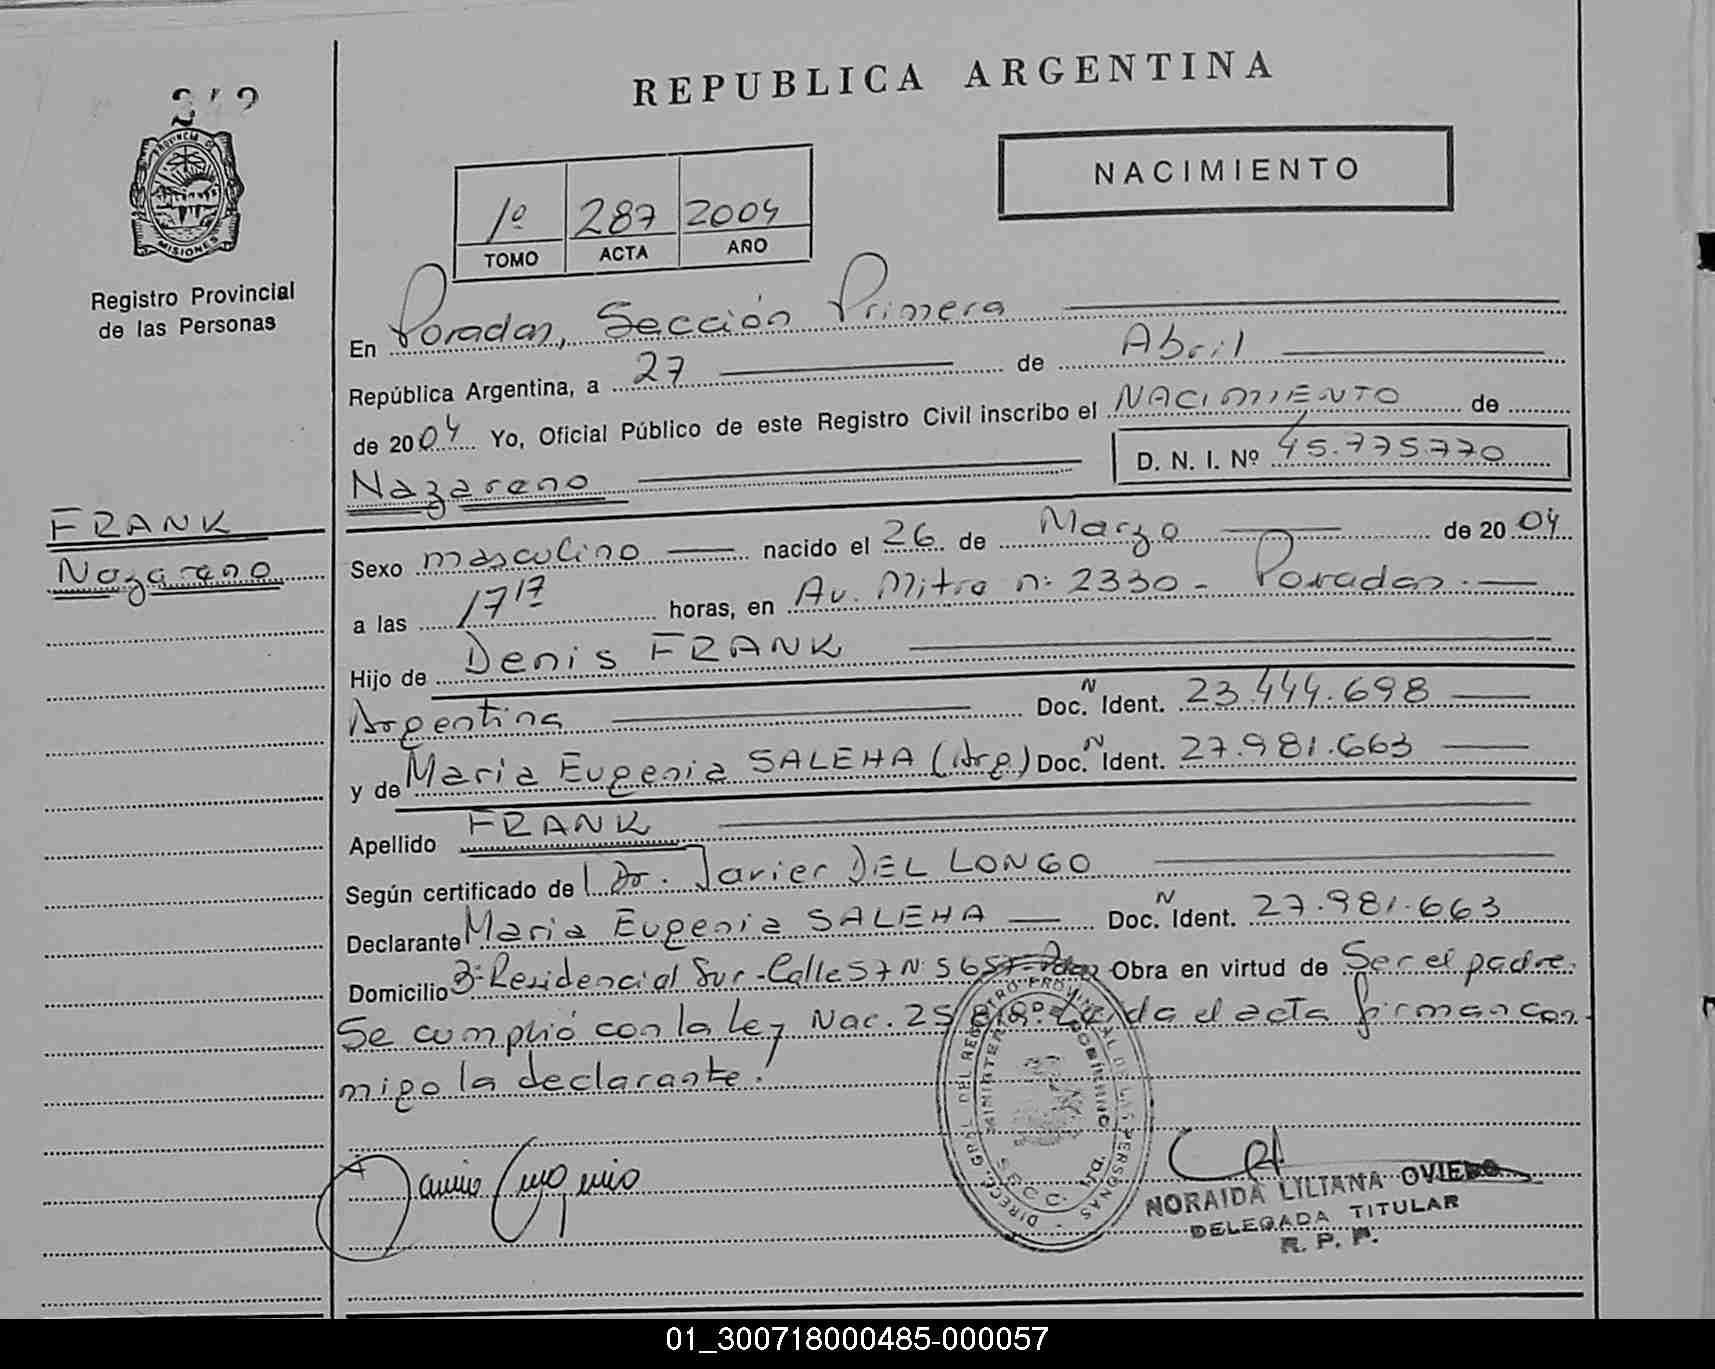 REPUBLICA ARGENTINA
NACIMIENTO
PROVINCIA DE
MISIONES
Registro Provincial
de las Personas
1º 287 2004
TOMO ACTA AÑO
En Posadas, Sección Primera
República Argentina, a 27 de Abril
de 2004 Yo, Oficial Público de este Registro Civil inscribo el NACIMIENTO de
D. N. I. Nº 45.775.770
Nazareno
FRANK
Nazareno
Sexo masculino nacido el 26 de Marzo de 2004
a las 17 17 horas, en Av. Mitre n: 2330 - Posadas.
Hijo de Denis FRANK
Argentina Doc. N Ident. 23.444.698
y de Maria Eugenia SALEHA (Arg) Doc. N Ident. 27.981.663
Apellido FRANK
Según certificado de Dr. Javier DEL LONGO
Declarante Maria Eugenia SALEHA Doc. N Ident. 27.981.663
Domicilio Residencial Sur - Calle 57 N: 5657 Obra en virtud de Ser el padre.
Se cumplió con la Ley Nac. 25.818. Leida el acta firman con
migo la declarante.
NORAIDA LILIANA OVIEDO
DELEGADA TITULAR
R. P. P.
01_300718000485-000057